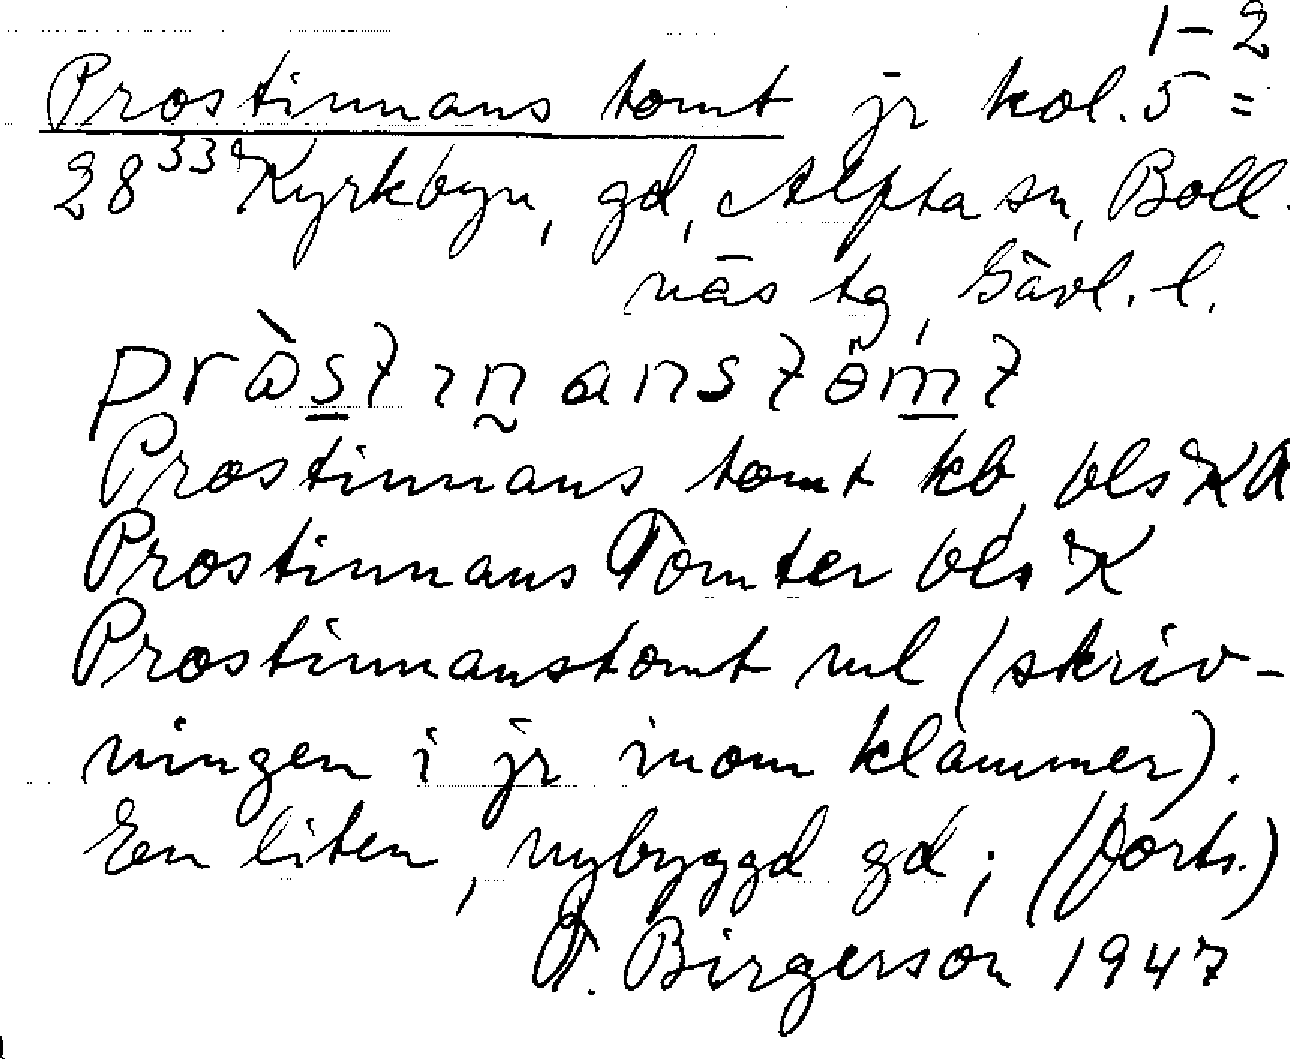 1–2
Prostinnans tomt jr kol. 5 =
28³³ Kyrkbyn, gd, Alfta sn, Boll-
näs tg, Gävl. l.
Prostinnans tomt kb, vls
Prostinnans Tomter vls
Prostinnanstomt ml (skriv-
ningen i jr inom klammer).
En liten, nybyggd gd; (forts.)
Birgerson 1947